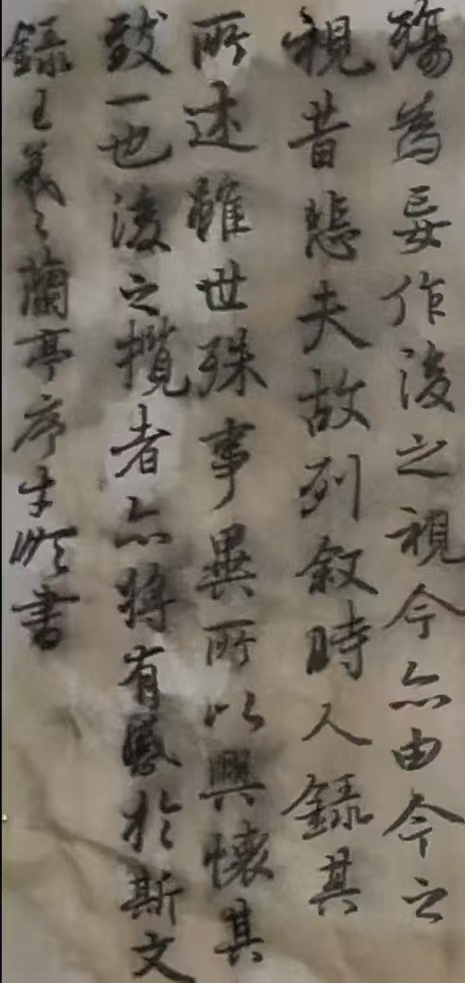 殤為妄作後之視今亦由今之
視昔悲夫故列敘時人錄其
所述雖世殊事異所以興懷其
致一也後之攬者亦將有感於斯文
錄王羲之蘭亭序 書